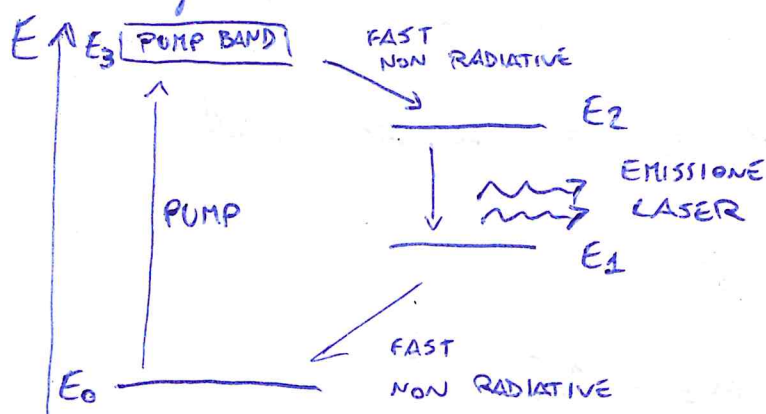 E
E3 PUMP BAND
FAST
NON RADIATIVE
E2
EMISSIONE
LASER
PUMP
E1
FAST
NON RADIATIVE
E0